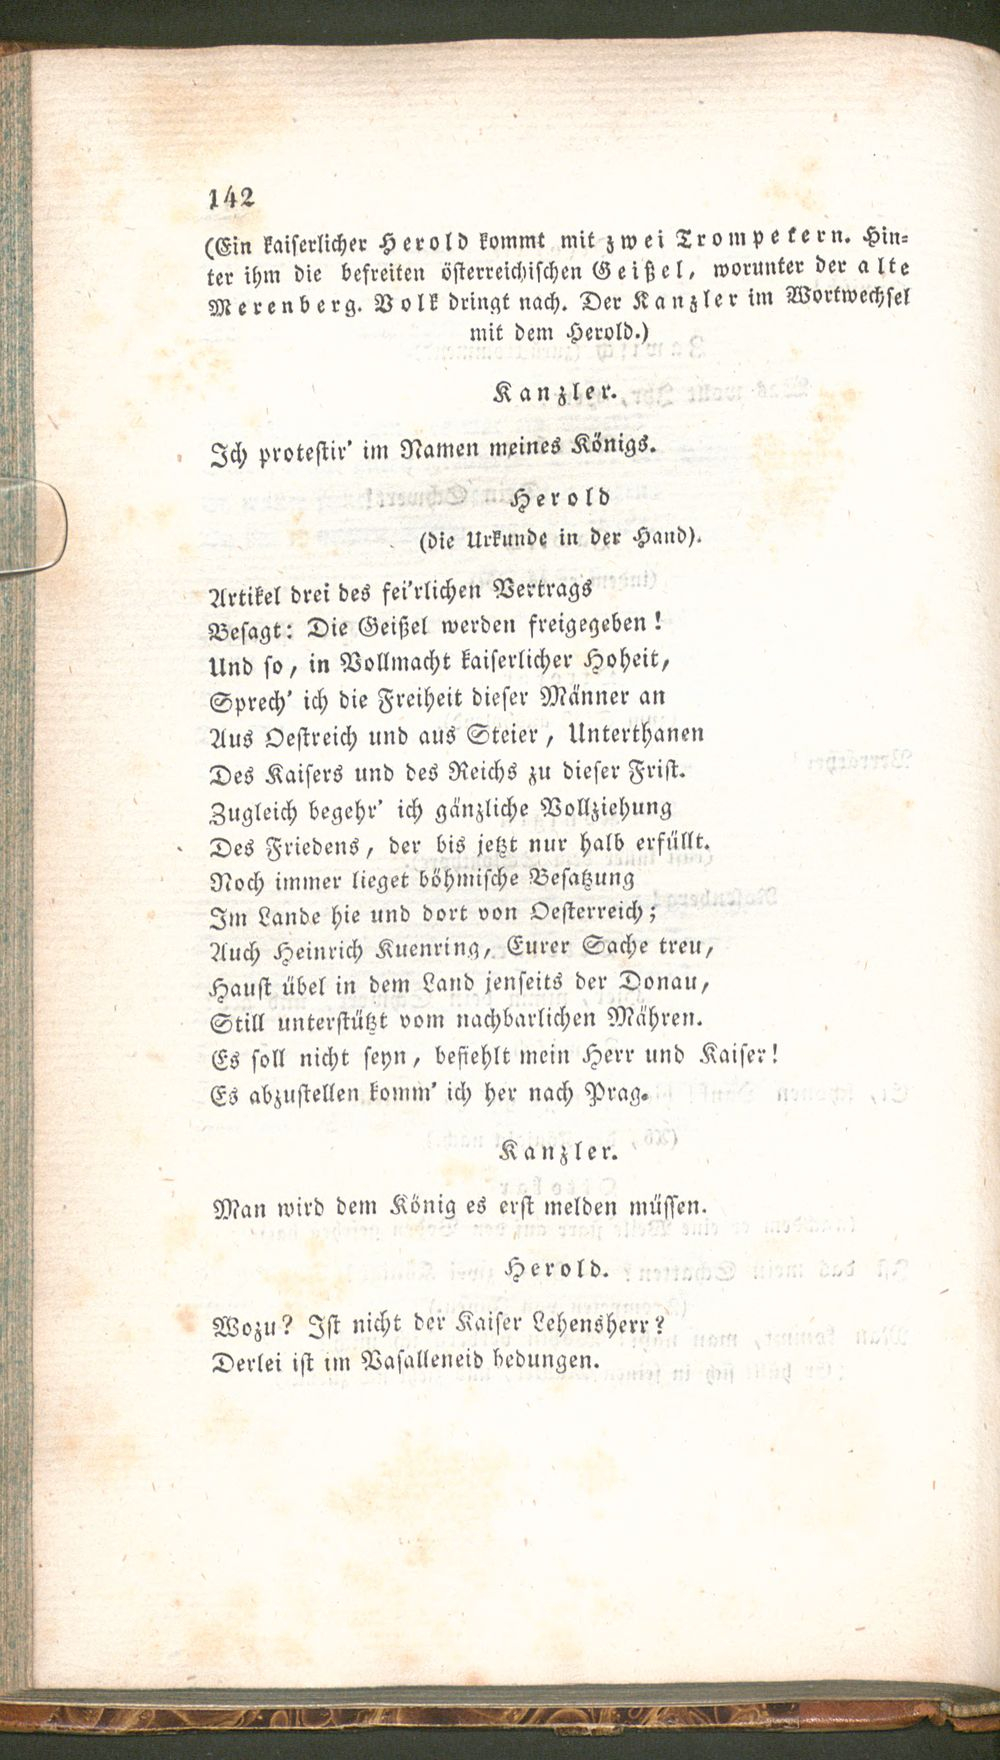 142
(Ein kaiserlicher Herold kommt mit zwei Trompetern. Hin-
ter ihm die befreiten österreichischen Geißel, worunter der alte
Merenberg. Volk dringt nach. Der Kanzler im Wortwechsel
mit dem Herold.)
Kanzler.
Ich protestir' im Namen meines Königs.
Herold
(die Urkunde in der Hand).
Artikel drei des fei'rlichen Vertrags
Besagt: Die Geißel werden freigegeben!
Und so, in Vollmacht kaiserlicher Hoheit,
Sprech' ich die Freiheit dieser Männer an
Aus Oestreich und aus Steier, Unterthanen
Des Kaisers und des Reichs zu dieser Frist.
Zugleich begehr' ich gänzliche Vollziehung
Des Friedens, der bis jetzt nur halb erfüllt.
Noch immer lieget böhmische Besatzung
Im Lande hie und dort von Oesterreich;
Auch Heinrich Kuenring, Eurer Sache treu,
Haust übel in dem Land jenseits der Donau,
Still unterstützt vom nachbarlichen Mähren.
Es soll nicht seyn, befiehlt mein Herr und Kaiser!
Es abzustellen komm' ich her nach Prag.
Kanzler.
Man wird dem König es erst melden müssen.
Herold.
Wozu? Ist nicht der Kaiser Lehensherr?
Derlei ist im Vasalleneid bedungen.